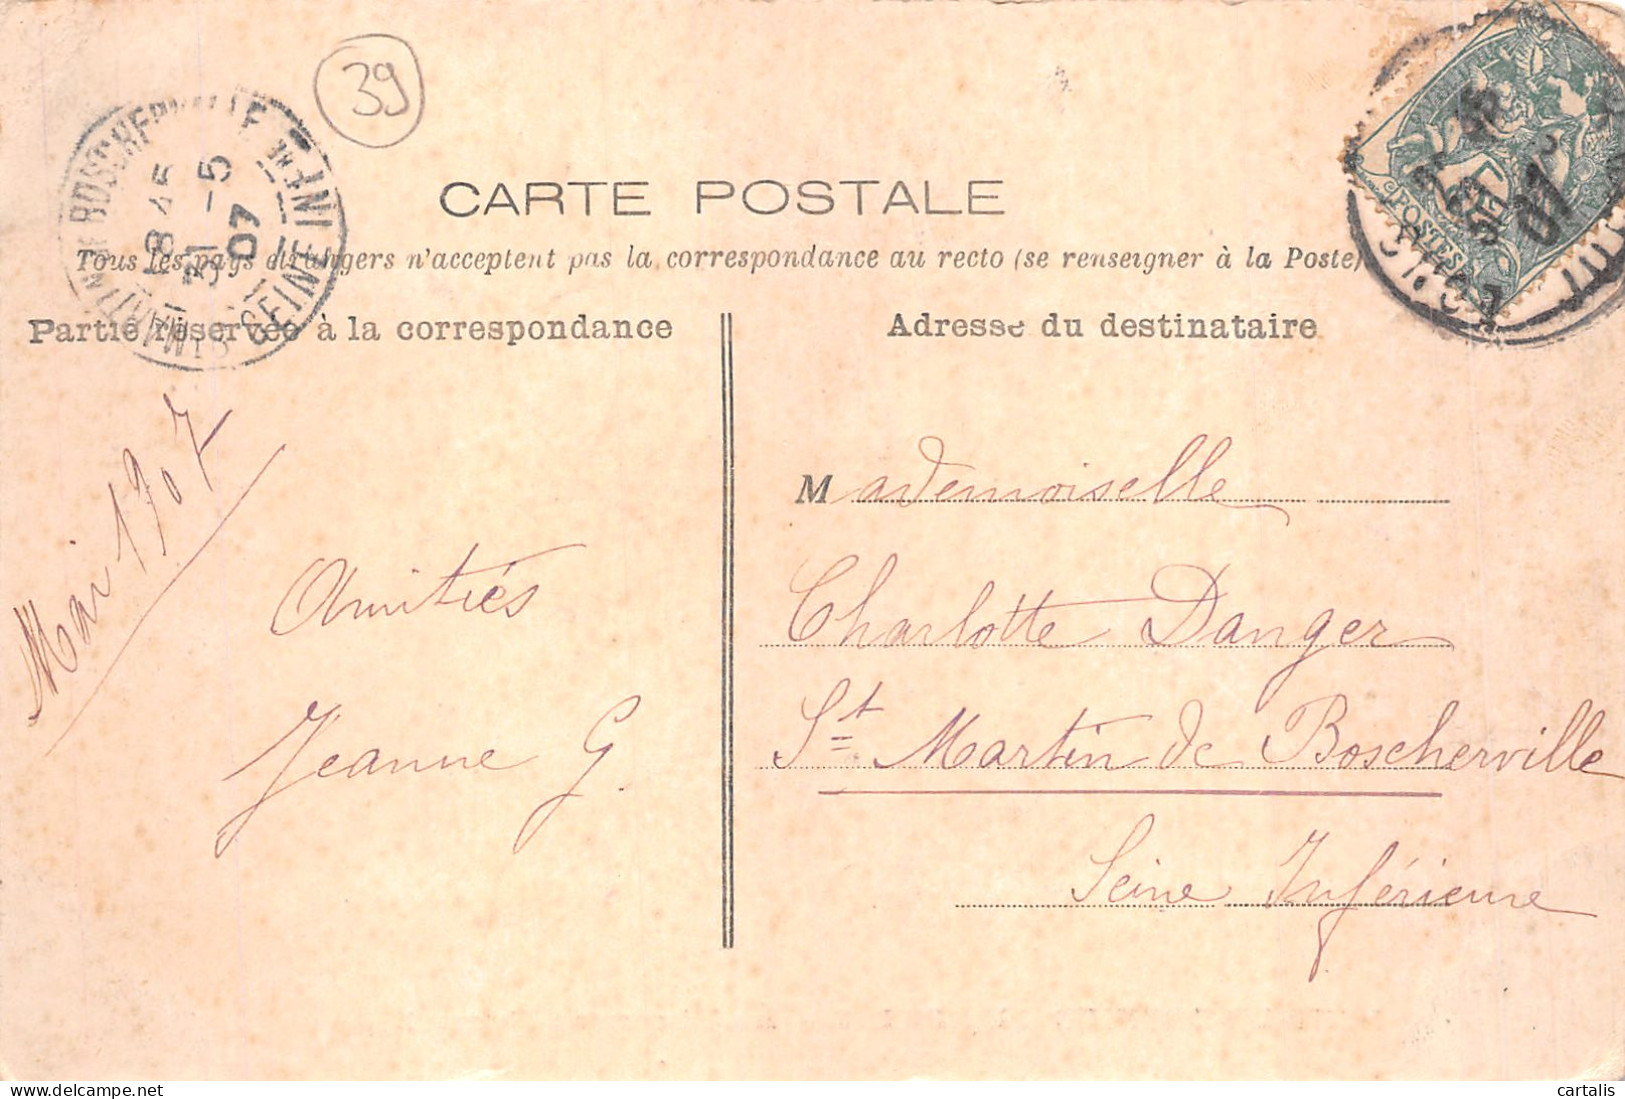 39
CARTE POSTALE
Tous les pays étrangers n'acceptent pas la correspondance au recto (se renseigner à la Poste)
Partie réservée à la correspondance
Adresse du destinataire
Mai 1907
Amitiés
Jeanne G.
Mademoiselle
Charlotte Danger
St Martin de Boscherville
Seine Inférieure
BOSCHERVILLE
SEINE INF
ST MARTIN
8 45
31 -5
07
POSTES
07
delcampe.net
cartalis